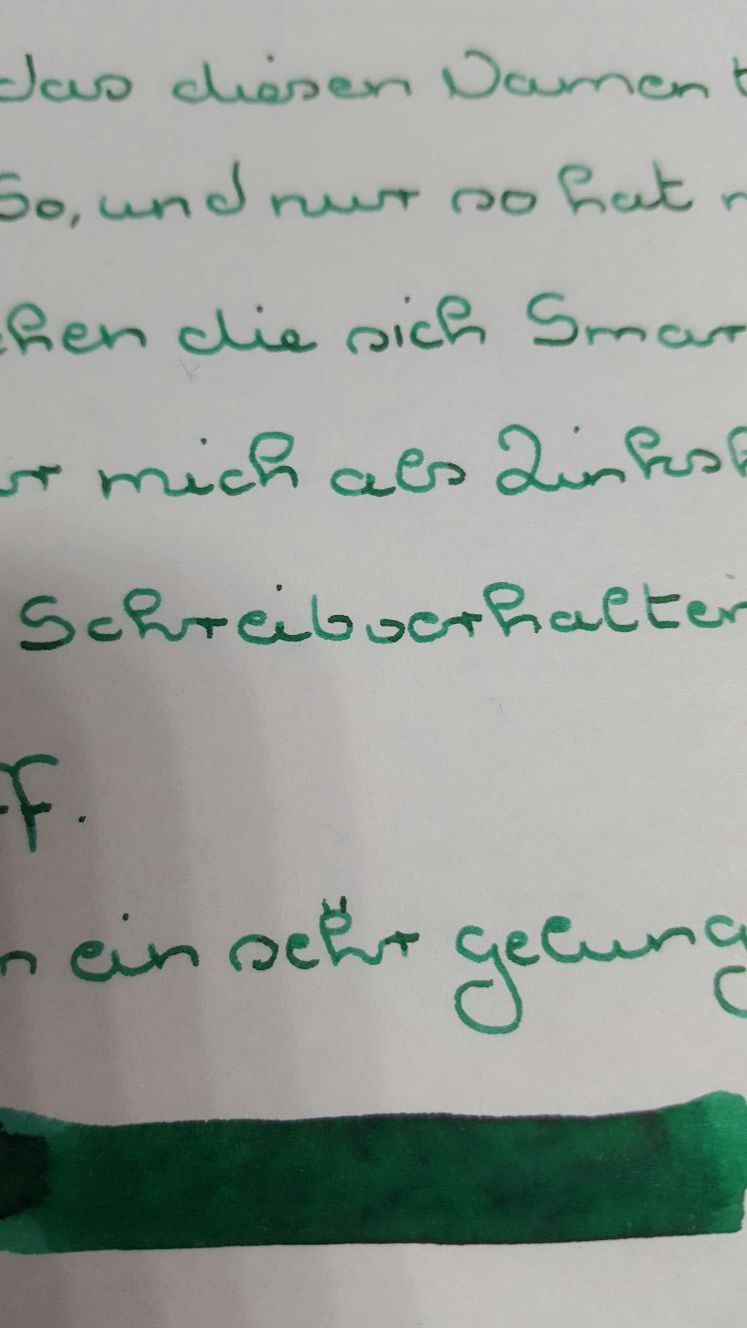 das diesen Namen t
So, und nur so hat
hen die sich Smar
r mich als Linksh
Schreibverhalten
f.
n ein sehr gelung